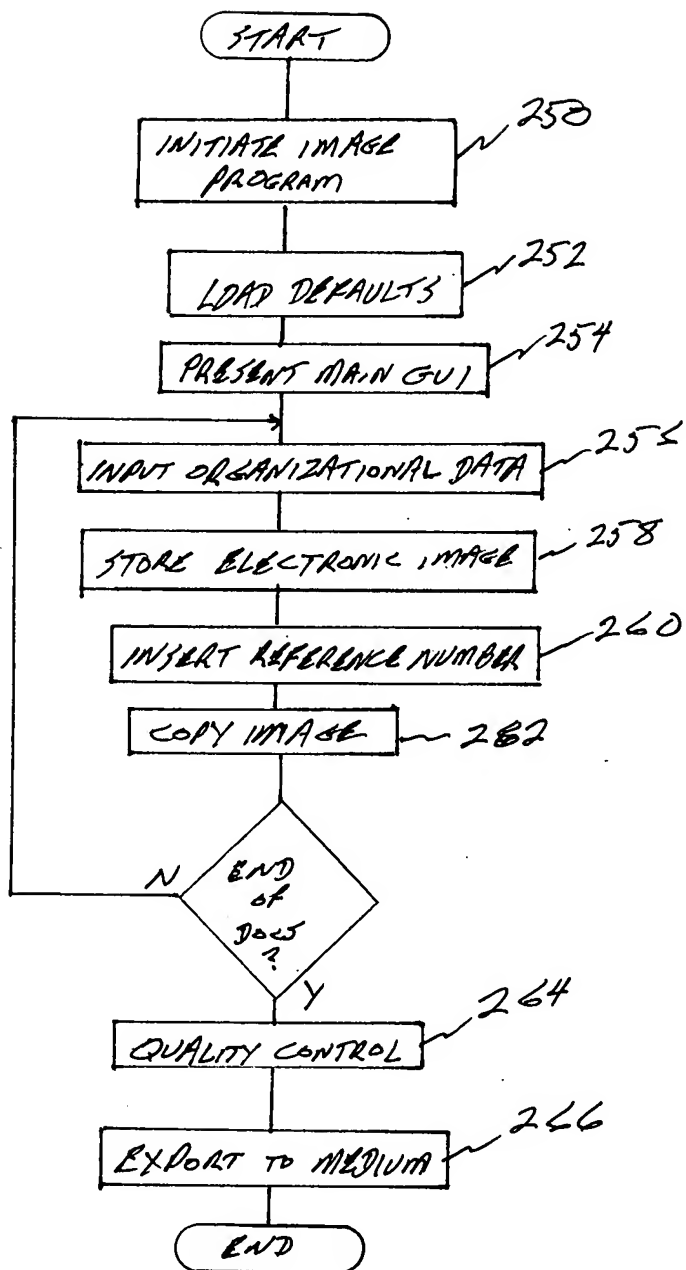 START
INITIATE IMAGE
PROGRAM
250
LOAD DEFAULTS
252
PRESENT MAIN GUI
254
INPUT ORGANIZATIONAL DATA
256
STORE ELECTRONIC IMAGE
258
INSERT REFERENCE NUMBER
260
COPY IMAGE
262
END
of
DOCS
?
N
Y
QUALITY CONTROL
264
EXPORT TO MEDIUM
266
END